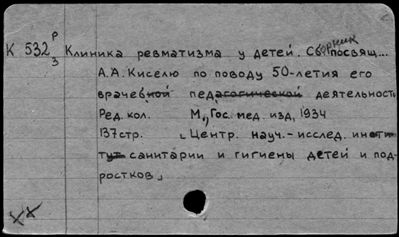 К 532 Р/3 Клиника ревматизма у детей. Сборник посвящ...
А.А. Киселю по поводу 50-летия его
врачебной педагогической деятельност
Ред. кол. М., Гос. мед. изд, 1934
137 стр. „Центр. науч.-исслед. инсти-
тут санитарии и гигиены детей и под-
ростков"
ХХ